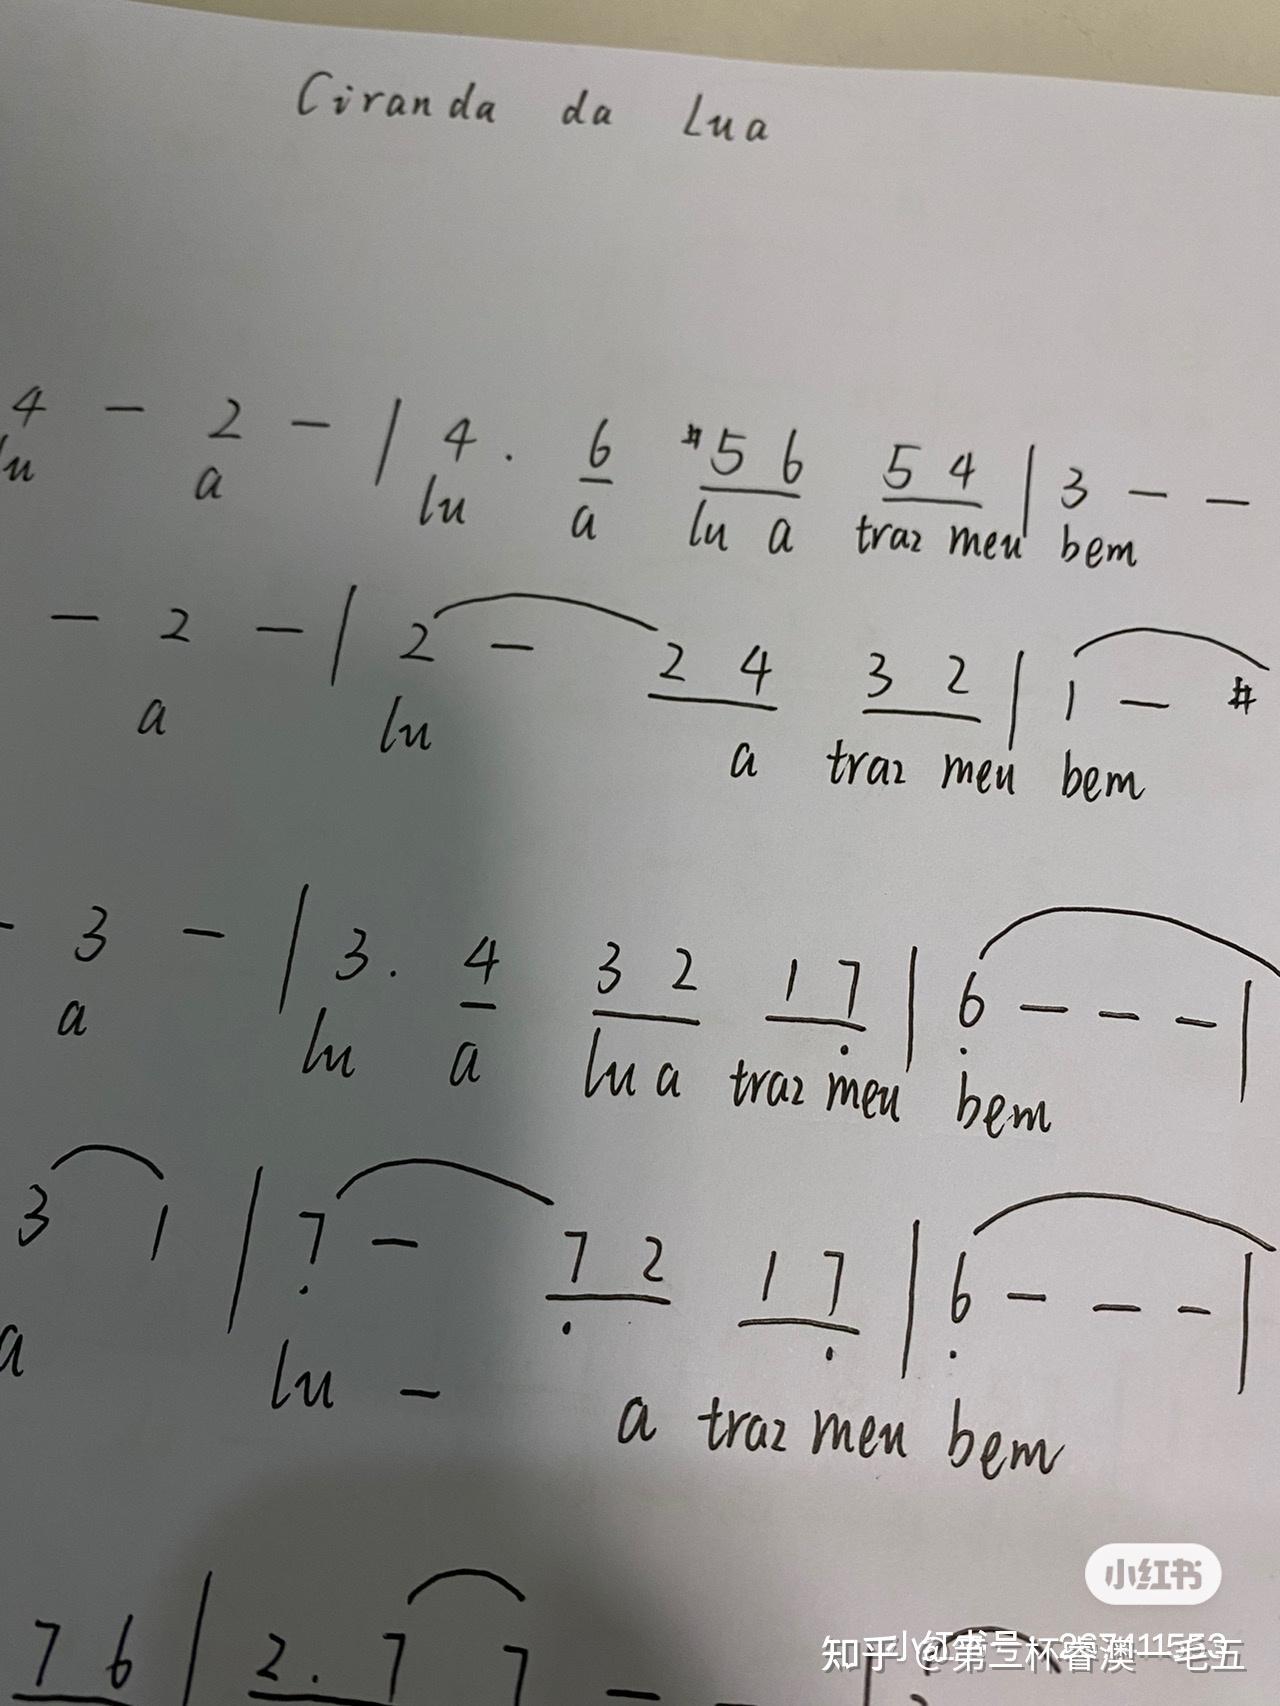 Ciranda da Lua
4 - 2 - | 4. 6 #5 6 5 4 | 3 - -
lu a lu a lu a traz meu bem
- 2 - | 2 - 2 4 3 2 | 1 - #
a lu a traz meu bem
- 3 - | 3. 4 3 2 1 7 | 6 - - - |
a lu a lu a traz meu bem
3 1 | 7 - 7 2 1 7 | 6 - - - |
a lu - a traz meu bem
7 6 | 2. 7 7 - - |
小红书
小红书号
知乎 @第三杯睿澳一毛五